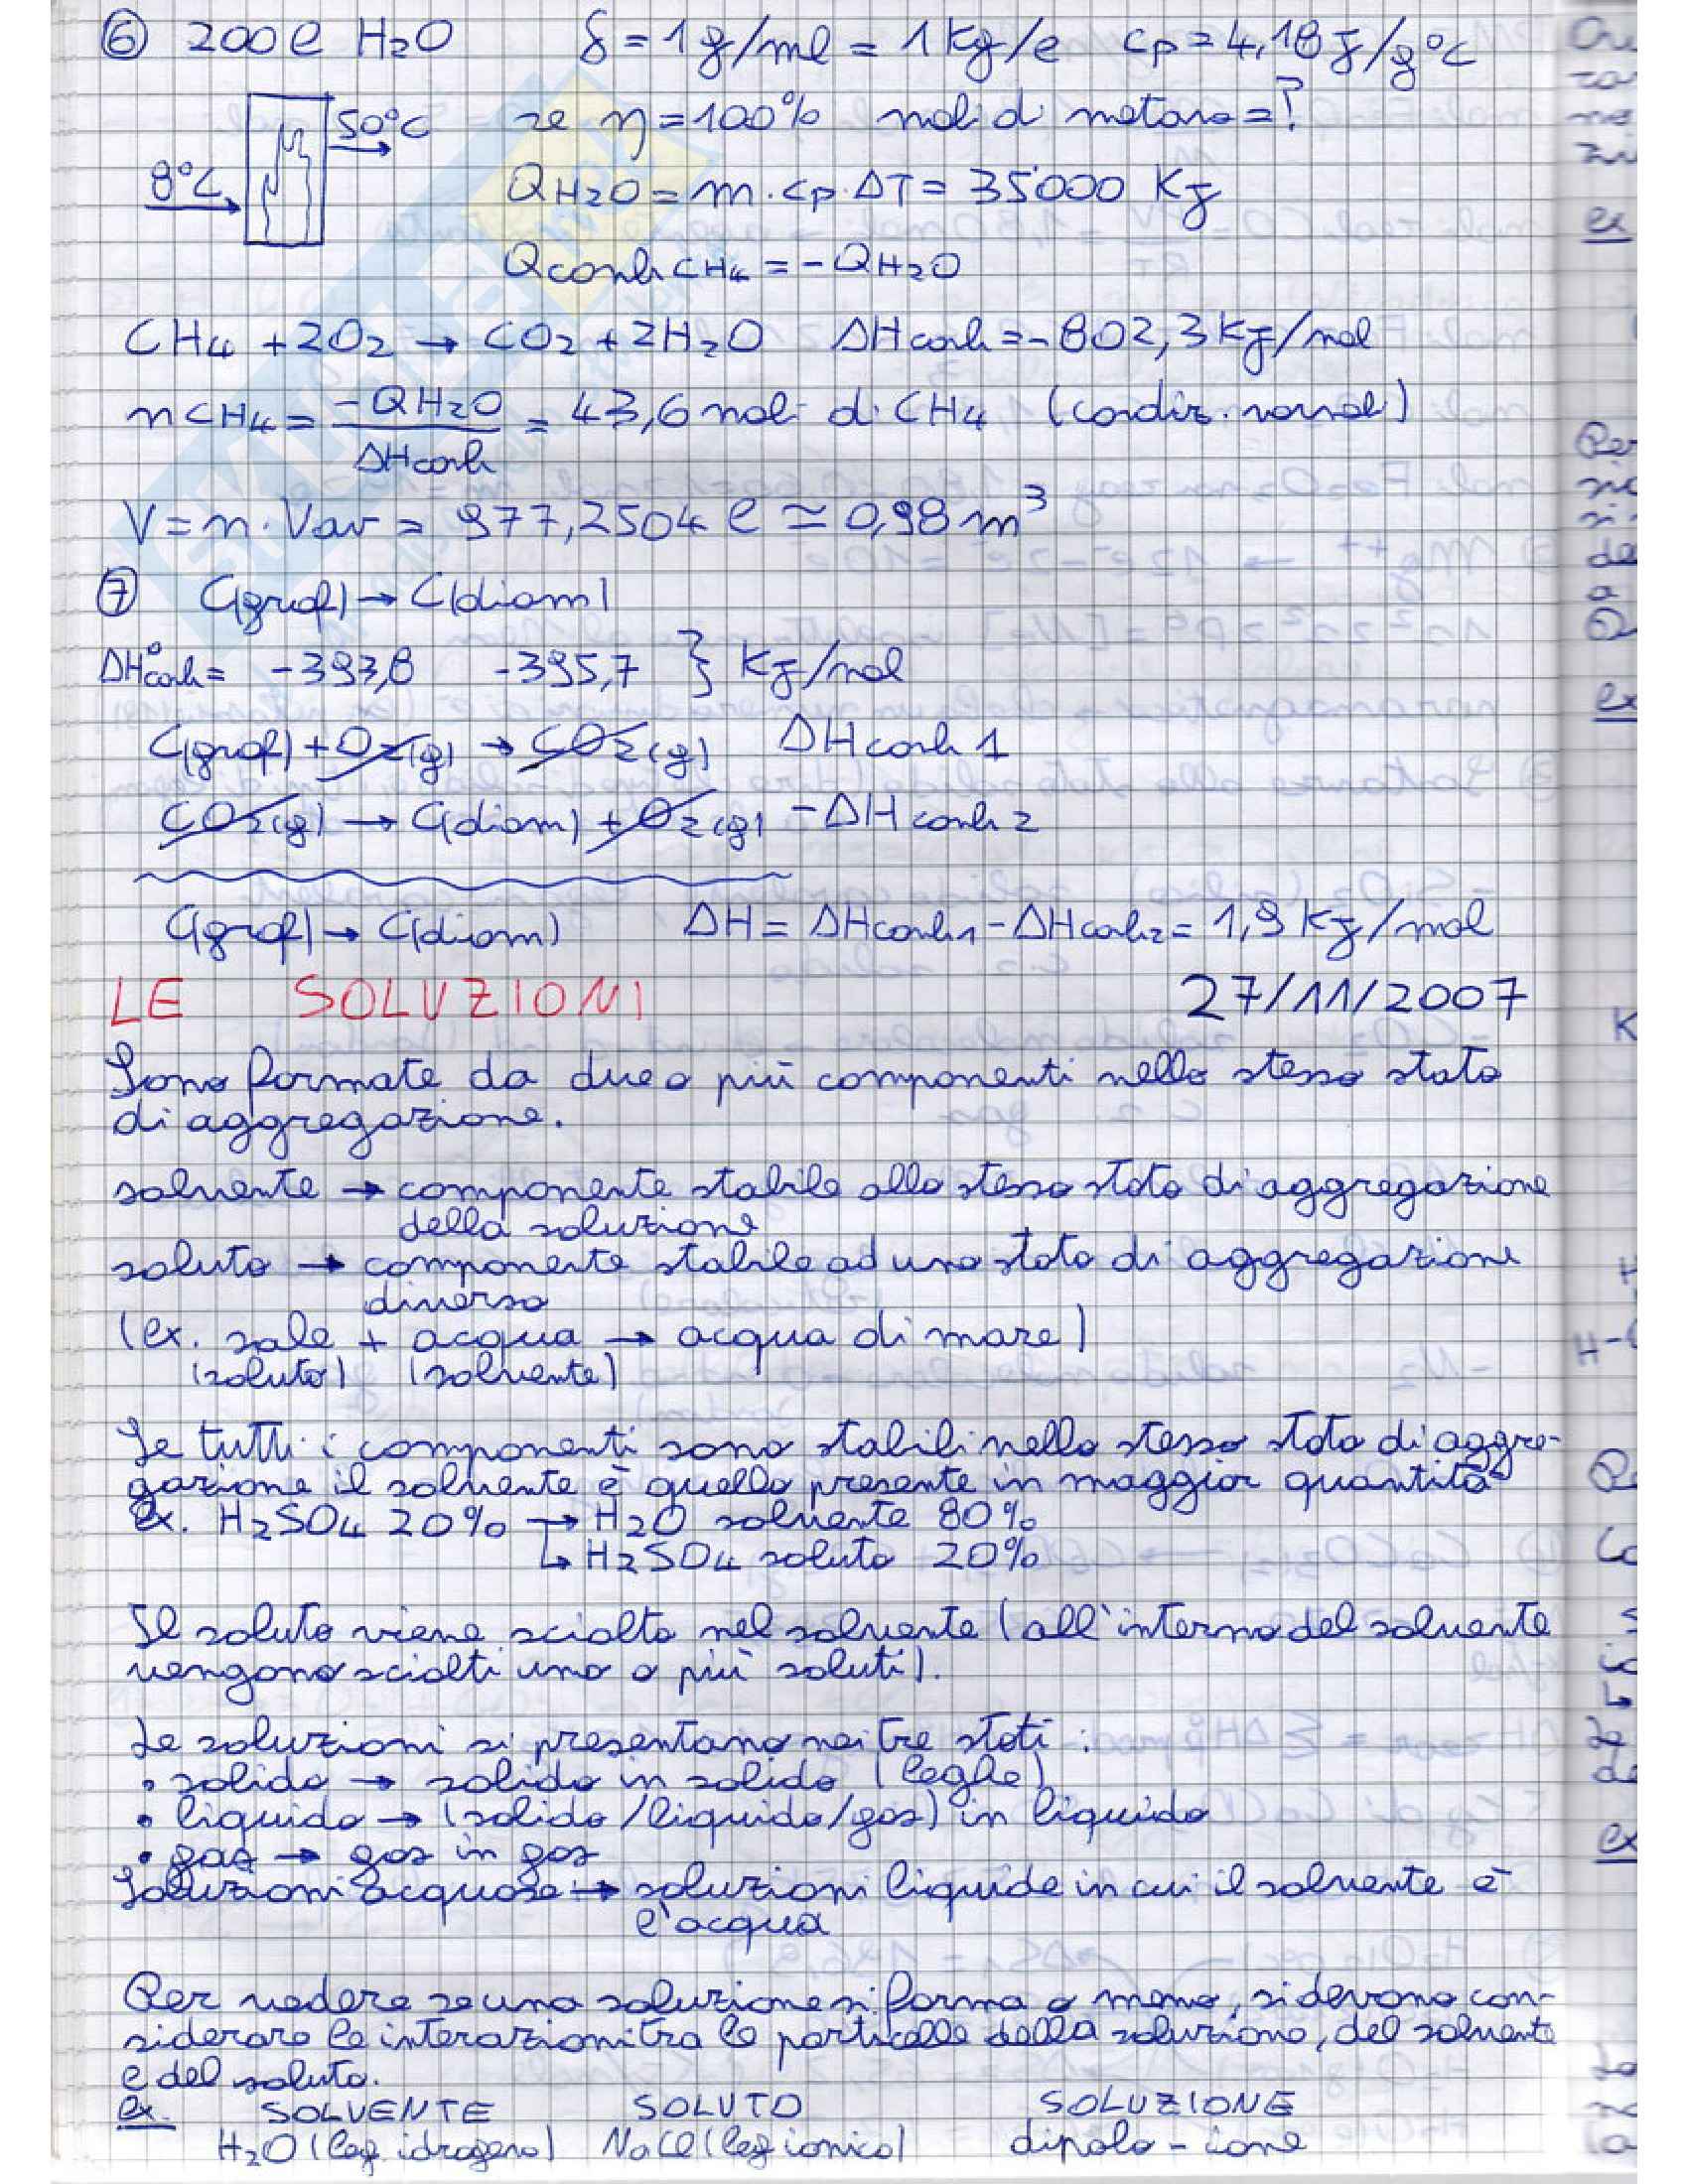 ⑥ 200 l H₂O δ = 1 g/ml = 1 Kg/l cp = 4,18 J/g°C
8°C 50°C se η = 100% moli di metano = ?
QH₂O = m · cp · ΔT = 35000 KJ
Qcomb CH₄ = - QH₂O
CH₄ + 2O₂ → CO₂ + 2H₂O ΔHcomb = - 802,3 KJ/mol
nCH₄ = -QH₂O / ΔHcomb = 43,6 moli di CH₄ (condiz. normali)
V = n · Vav = 977,2504 l ≃ 0,98 m³
⑦ C(graf) → C(diam)
ΔH°comb = -393,8 -395,7 } KJ/mol
C(graf) + O₂(g) → CO₂(g) ΔHcomb 1
CO₂(g) → C(diam) + O₂(g) -ΔHcomb 2
C(graf) → C(diam) ΔH = ΔHcomb₁ - ΔHcomb₂ = 1,9 KJ/mol
LE SOLUZIONI 27/11/2007
Sono formate da due o più componenti nello stesso stato
di aggregazione.
solvente → componente stabile allo stesso stato di aggregazione
della soluzione
soluto → componente stabile ad uno stato di aggregazione
diverso
(ex. sale + acqua → acqua di mare)
(soluto) (solvente)
Se tutti i componenti sono stabili nello stesso stato di aggre-
gazione il solvente è quello presente in maggior quantità
ex. H₂SO₄ 20% → H₂O solvente 80%
↳ H₂SO₄ soluto 20%
Il soluto viene sciolto nel solvente (all'interno del solvente
vengono sciolti uno o più soluti).
Le soluzioni si presentano nei tre stati:
• solido → solido in solido (leghe)
• liquido → (solido/liquido/gas) in liquido
• gas → gas in gas
Soluzioni acquose → soluzioni liquide in cui il solvente è
l'acqua
Per vedere se una soluzione si forma o meno, si devono con-
siderare le interazioni tra le particelle della soluzione, del solvente
e del soluto.
ex. SOLVENTE SOLUTO SOLUZIONE
H₂O (leg. idrogeno) NaCl (leg ionico) dipolo - ione